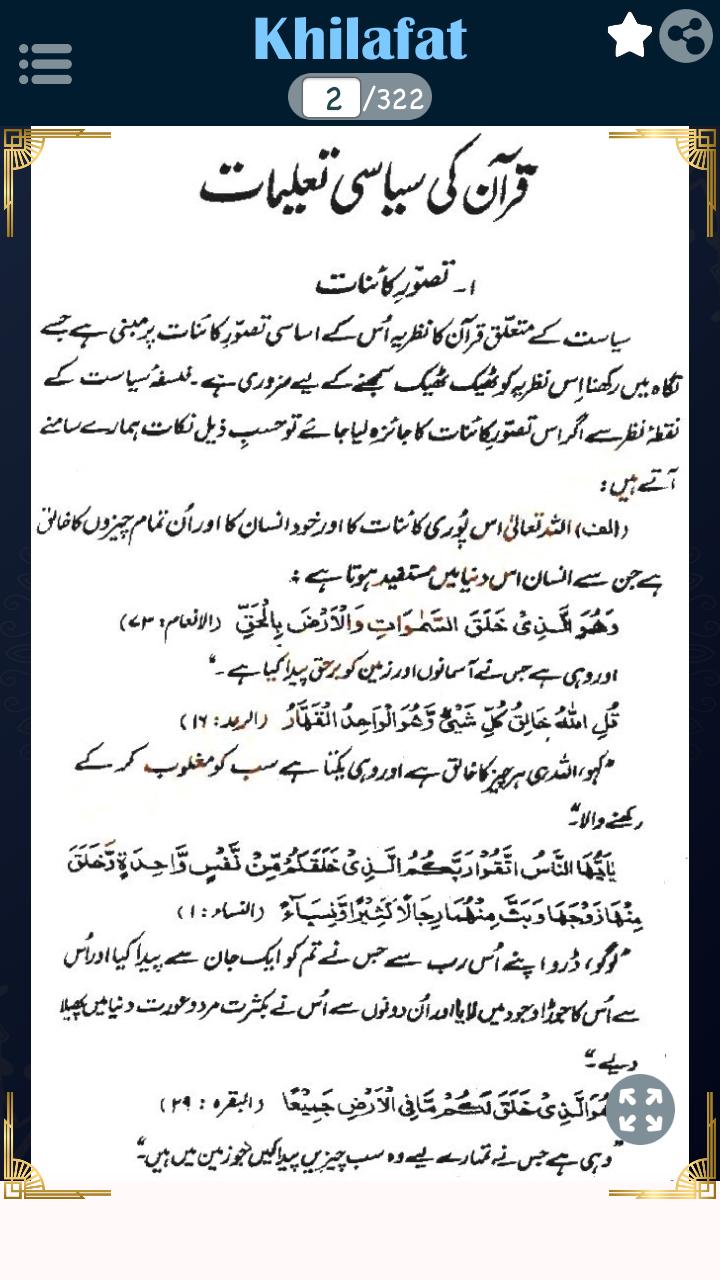 Khilafat
2 /322
قرآن کی سیاسی تعلیمات
۱۔ تصوّرِ کائنات
سیاست کے متعلّق قرآن کا نظریہ اُس کے اساسی تصوّرِ کائنات پر مبنی ہے جسے
نگاہ میں رکھنا اِس نظریہ کو ٹھیک ٹھیک سمجھنے کے لیے ضروری ہے۔ فلسفۂ سیاست کے
نقطۂ نظر سے اگر اس تصوّرِ کائنات کا جائزہ لیا جائے تو حسبِ ذیل نکات ہمارے سامنے
آتے ہیں:
(الف) اللہ تعالیٰ اس پُوری کائنات کا اور خود انسان کا اور اُن تمام چیزوں کا خالق
ہے جن سے انسان اس دنیا میں مستفید ہوتا ہے :
وَهُوَ الَّذِىْ خَلَقَ السَّمٰوَاتِ وَالْاَرْضَ بِالْحَقِّ (الانعام: ۷۳)
اور وہی ہے جس نے آسمانوں اور زمین کو برحق پیدا کیا ہے۔“
قُلِ اللّٰهُ خَالِقُ كُلِّ شَيْءٍ وَّهُوَ الْوَاحِدُ الْقَهَّارُ (الرعد: ۱۶)
”کہو، اللہ ہی ہر چیز کا خالق ہے اور وہی یکتا ہے سب کو مغلوب کر کے
رکھنے والا۔“
يٰاَيُّهَا النَّاسُ اتَّقُوْا رَبَّكُمُ الَّذِىْ خَلَقَكُمْ مِّنْ نَّفْسٍ وَّاحِدَةٍ وَّخَلَقَ
مِنْهَا زَوْجَهَا وَبَثَّ مِنْهُمَا رِجَالًا كَثِيْرًا وَّنِسَآءً (النساء: ۱)
”لوگو، ڈرو اپنے اُس رب سے جس نے تم کو ایک جان سے پیدا کیا اور اُس
سے اُس کا جوڑا وجود میں لایا اور اُن دونوں سے اُس نے بکثرت مرد و عورت دنیا میں پھیلا
دیے۔“
هُوَ الَّذِىْ خَلَقَ لَكُمْ مَّا فِى الْاَرْضِ جَمِيْعًا (البقرہ : ۲۹)
”وہی ہے جس نے تمہارے لیے وہ سب چیزیں پیدا کیں جو زمین میں ہیں۔“